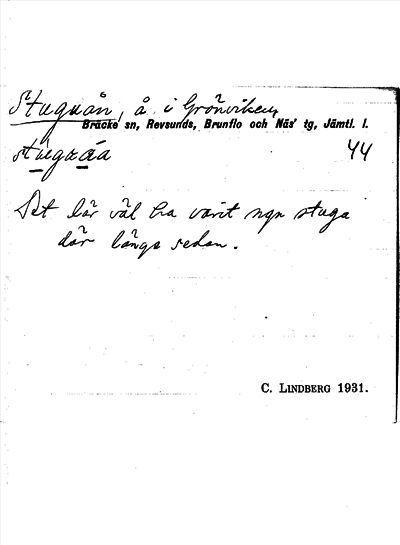 Stuguån, å i Grönviken,
Bräcke sn, Revsunds, Brunflo och Näs' tg, Jämtl. l.
44
Det lär väl ha varit ngn stuga
där längs sedan.
C. LINDBERG 1931.